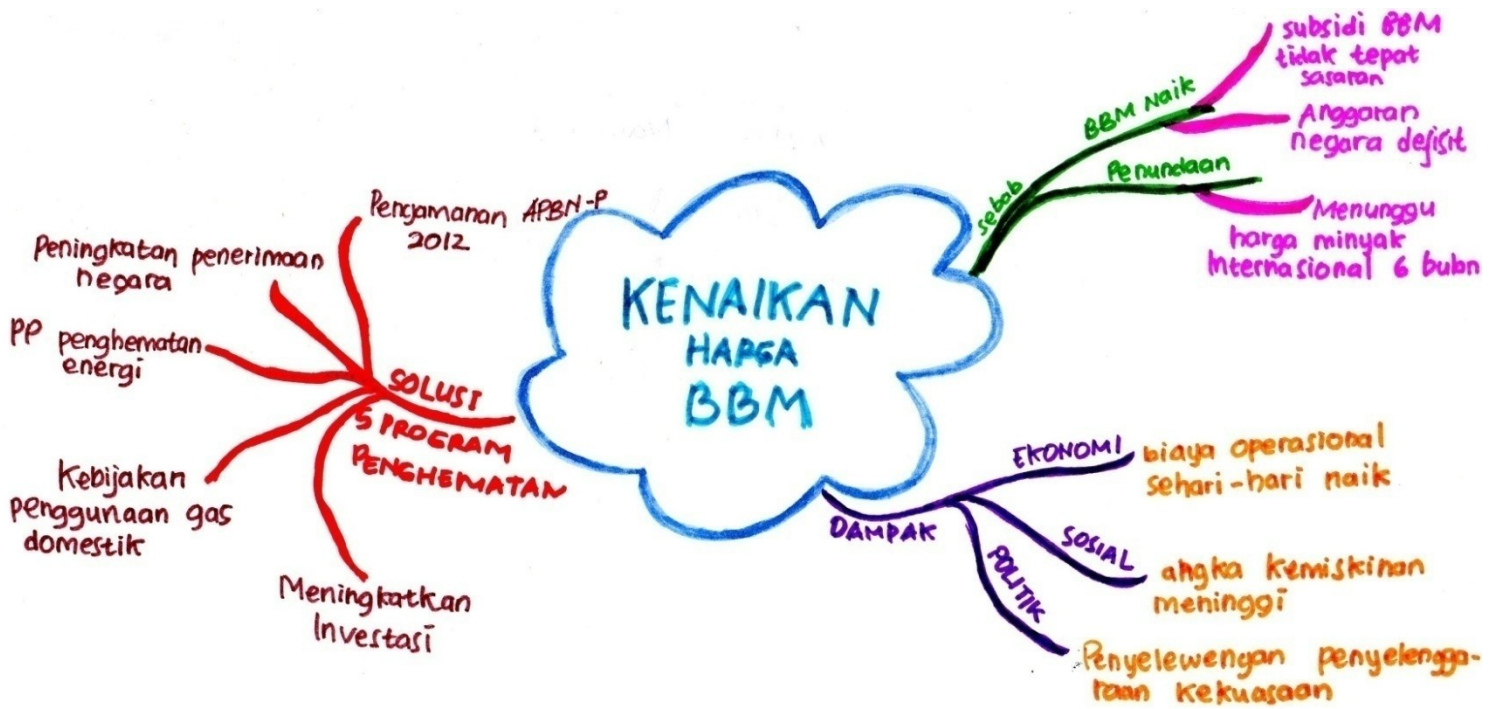 KENAIKAN
HARGA
BBM
sebab
BBM Naik
subsidi BBM
tidak tepat
sasaran
Anggaran
negara defisit
Penundaan
Menunggu
harga minyak
Internasional 6 bulan
DAMPAK
EKONOMI
biaya operasional
sehari-hari naik
SOSIAL
angka kemiskinan
meninggi
POLITIK
Penyelewengan penyelengga-
raan kekuasaan
SOLUSI
5 PROGRAM
PENGHEMATAN
Pengamanan APBN-P
2012
Peningkatan penerimaan
negara
PP penghematan
energi
Kebijakan
penggunaan gas
domestik
Meningkatkan
Investasi